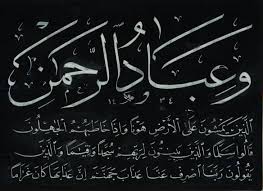 وَعِبَادُ الرَّحْمٰنِ
١٤ ٣٤
الَّذِينَ يَمْشُونَ عَلَى الْأَرْضِ هَوْنًا وَإِذَا خَاطَبَهُمُ الْجٰهِلُونَ
قَالُوا سَلَامًا وَالَّذِينَ يَبِيتُونَ لِرَبِّهِمْ سُجَّدًا وَقِيَامًا وَالَّذِينَ
يَقُولُونَ رَبَّنَا اصْرِفْ عَنَّا عَذَابَ جَهَنَّمَ إِنَّ عَذَابَهَا كَانَ غَرَامًا